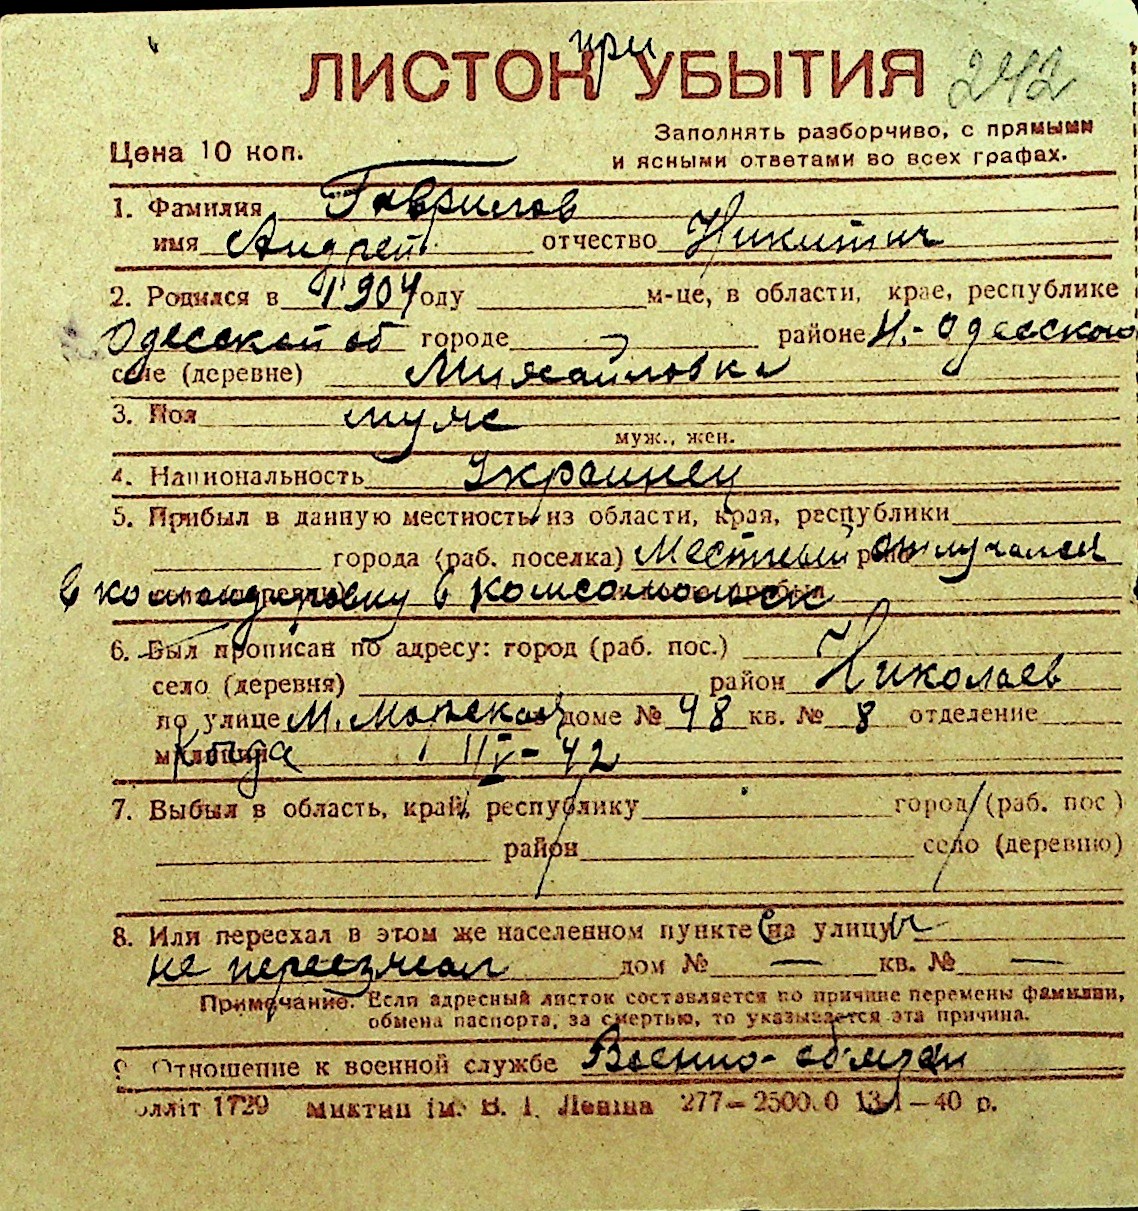 при
ЛИСТОК УБЫТИЯ 242
Цена 10 коп.
Заполнять разборчиво, с прямыми
и ясными ответами во всех графах.
1. Фамилия Гаврилов
имя Андрей отчество Никитич
2. Родился в 1904 году м-це, в области, крае, республике
Одесской об городе — районе Н.-Одесского
селе (деревне) Михайловка
3. Пол муж
муж., жен.
4. Национальность Украинец
5. Прибыл в данную местность из области, края, республики
города (раб. поселка) Местный отлучался
в командировку в комсомольск
6. Был прописан по адресу: город (раб. пос.)
село (деревня) район Николаев
по улице М. Морская доме № 48 кв. № 8 отделение
милиции Когда 1/IV-42
7. Выбыл в область, край, республику город (раб. пос)
район село (деревню)
8. Или переехал в этом же населенном пункте с на улицу
не переезжал дом № — кв. № —
Примечание. Если адресный листок составляется по причине перемены фамилии,
обмена паспорта, за смертью, то указывается эта причина.
9 Отношение к военной службе Военно-обязан
оллiт 1729 Миктип iм. В. I. Ленiна 277—2500.0 13-I—40 р.